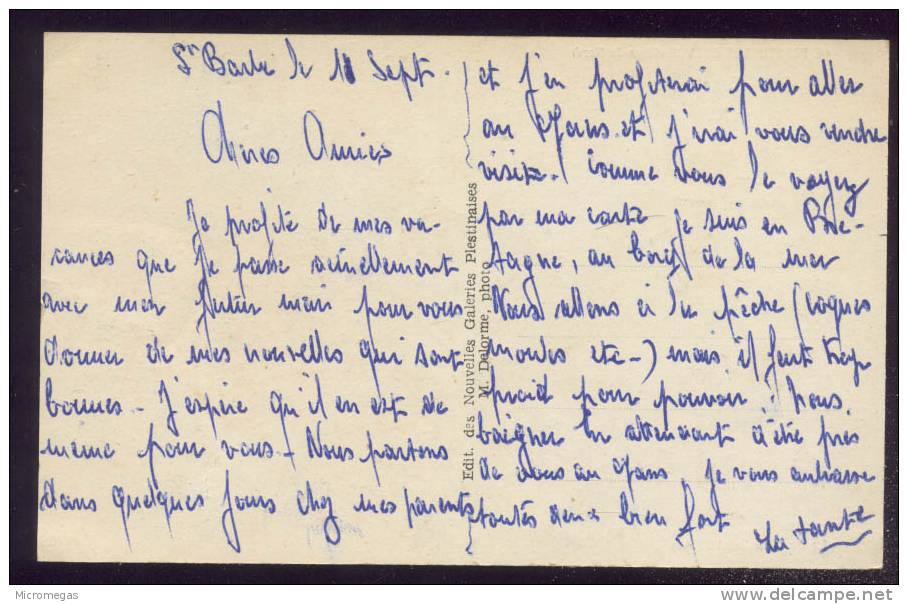 St Barbe le 11 Sept.
Chères Amies
Je profite de mes va-
cances que je passe actuellement
avec mon futur mari pour vous
donner de mes nouvelles qui sont
bonnes - J'espère qu'il en est de
même pour vous - Nous partons
dans quelques jours chez mes parents
et j'en profiterai pour aller
au Mans et j'irai vous rendre
visite. Comme vous le voyez
par ma carte je suis en Bre-
tagne, au bord de la mer
Nous allons à la pêche (coques
moules etc-) mais il fait trop
froid pour pouvoir nous
baigner En attendant d'être près
de vous au Mans, je vous embrasse
toutes deux bien fort
Edit. des Nouvelles Galeries Plestinaises
M. Delorme, photo
Micromegas
delcampe.net